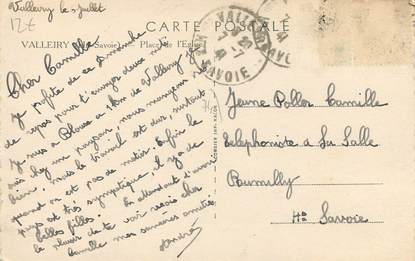 Valleiry le 3 Juillet
12€
CARTE POSTALE
VALLEIRY (Hte Savoie) - Place de l'Eglise
VALLEIRY
SAVOIE
Cher Camille
Je profite de ce dimanche
de repos pour t'envoyer deux mots
je suis à à 1 km de Valleiry je
suis chez un paysan, nous mangeons très
bien, mais le travail est dur, surtout
quand on est pas du métier. Enfin le
pays est très sympathique, il y a de
belles filles. En attendant d'avoir
le plaisir de te voir reçois cher
Camille mes sincères amitiés
André
74
Jeune Camille
téléphoniste à La Salle
Rumilly
Hte Savoie